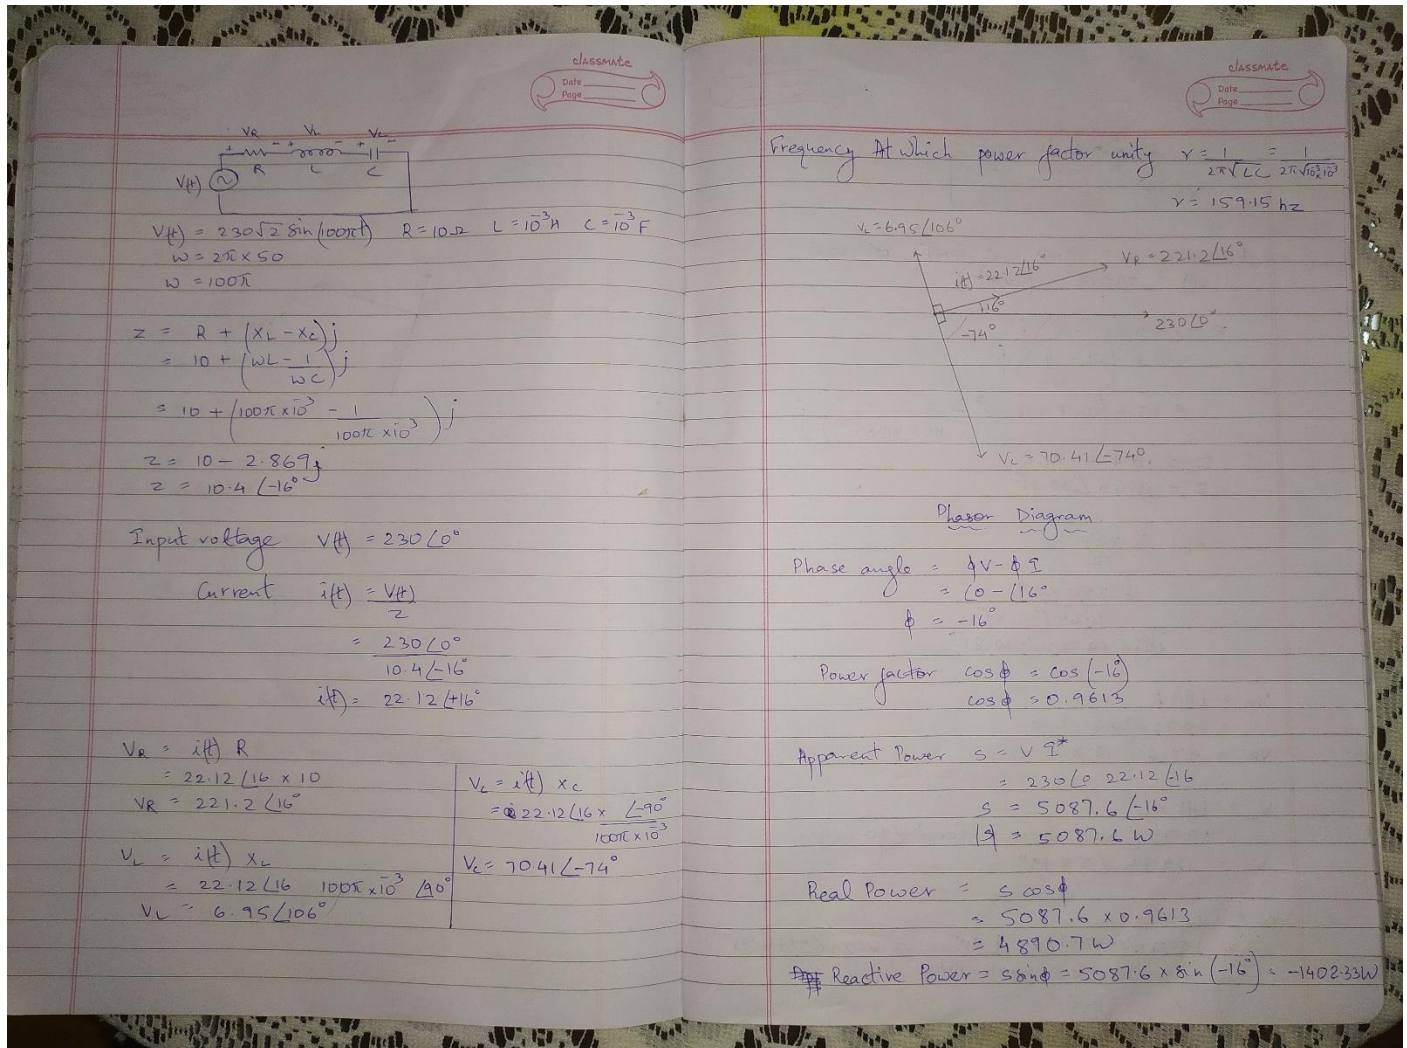 classmate
Date
Page
VR VL VC
+ - + - + -
R L C
V(t)
V(t) = 230√2 sin(100πt) R = 10Ω L = 10⁻³H C = 10⁻³F
W = 2π × 50
W = 100π
Z = R + (XL - XC)j
= 10 + (WL - 1/WC)j
= 10 + (100π × 10⁻³ - 1/(100π × 10⁻³))j
Z = 10 - 2.869j
Z = 10.4 ∠-16°
Input voltage V(t) = 230∠0°
Current i(t) = V(t)/Z
= 230∠0°/10.4∠-16°
i(t) = 22.12∠+16°
VR = i(t) R
= 22.12∠16 × 10
VR = 221.2∠16°
VL = i(t) XL
= 22.12∠16 100π×10⁻³ ∠90°
VL = 6.95∠106°
VC = i(t) XC
= 22.12∠16 × ∠-90°/(100π × 10⁻³)
VC = 70.41∠-74°
classmate
Date
Page
Frequency At which power factor unity γ = 1/(2π√LC) = 1/(2π√(10⁻³×10⁻³))
γ = 159.15 hz
VL = 6.95∠106°
i(t) = 22.12∠16°
VR = 221.2∠16°
+16°
230∠0°
-74°
VC = 70.41∠-74°
Phasor Diagram.
Phase angle = ϕV - ϕI
= ∠0 - ∠16°
ϕ = -16°
Power factor cosϕ = cos(-16°)
cosϕ = 0.9613
Apparent Power S = V I*
= 230∠0 22.12∠-16
S = 5087.6∠-16°
|S| = 5087.6 W
Real Power = S cosϕ
= 5087.6 × 0.9613
= 4890.7W
Reactive Power = S sinϕ = 5087.6 × sin(-16°) = -1402.33W